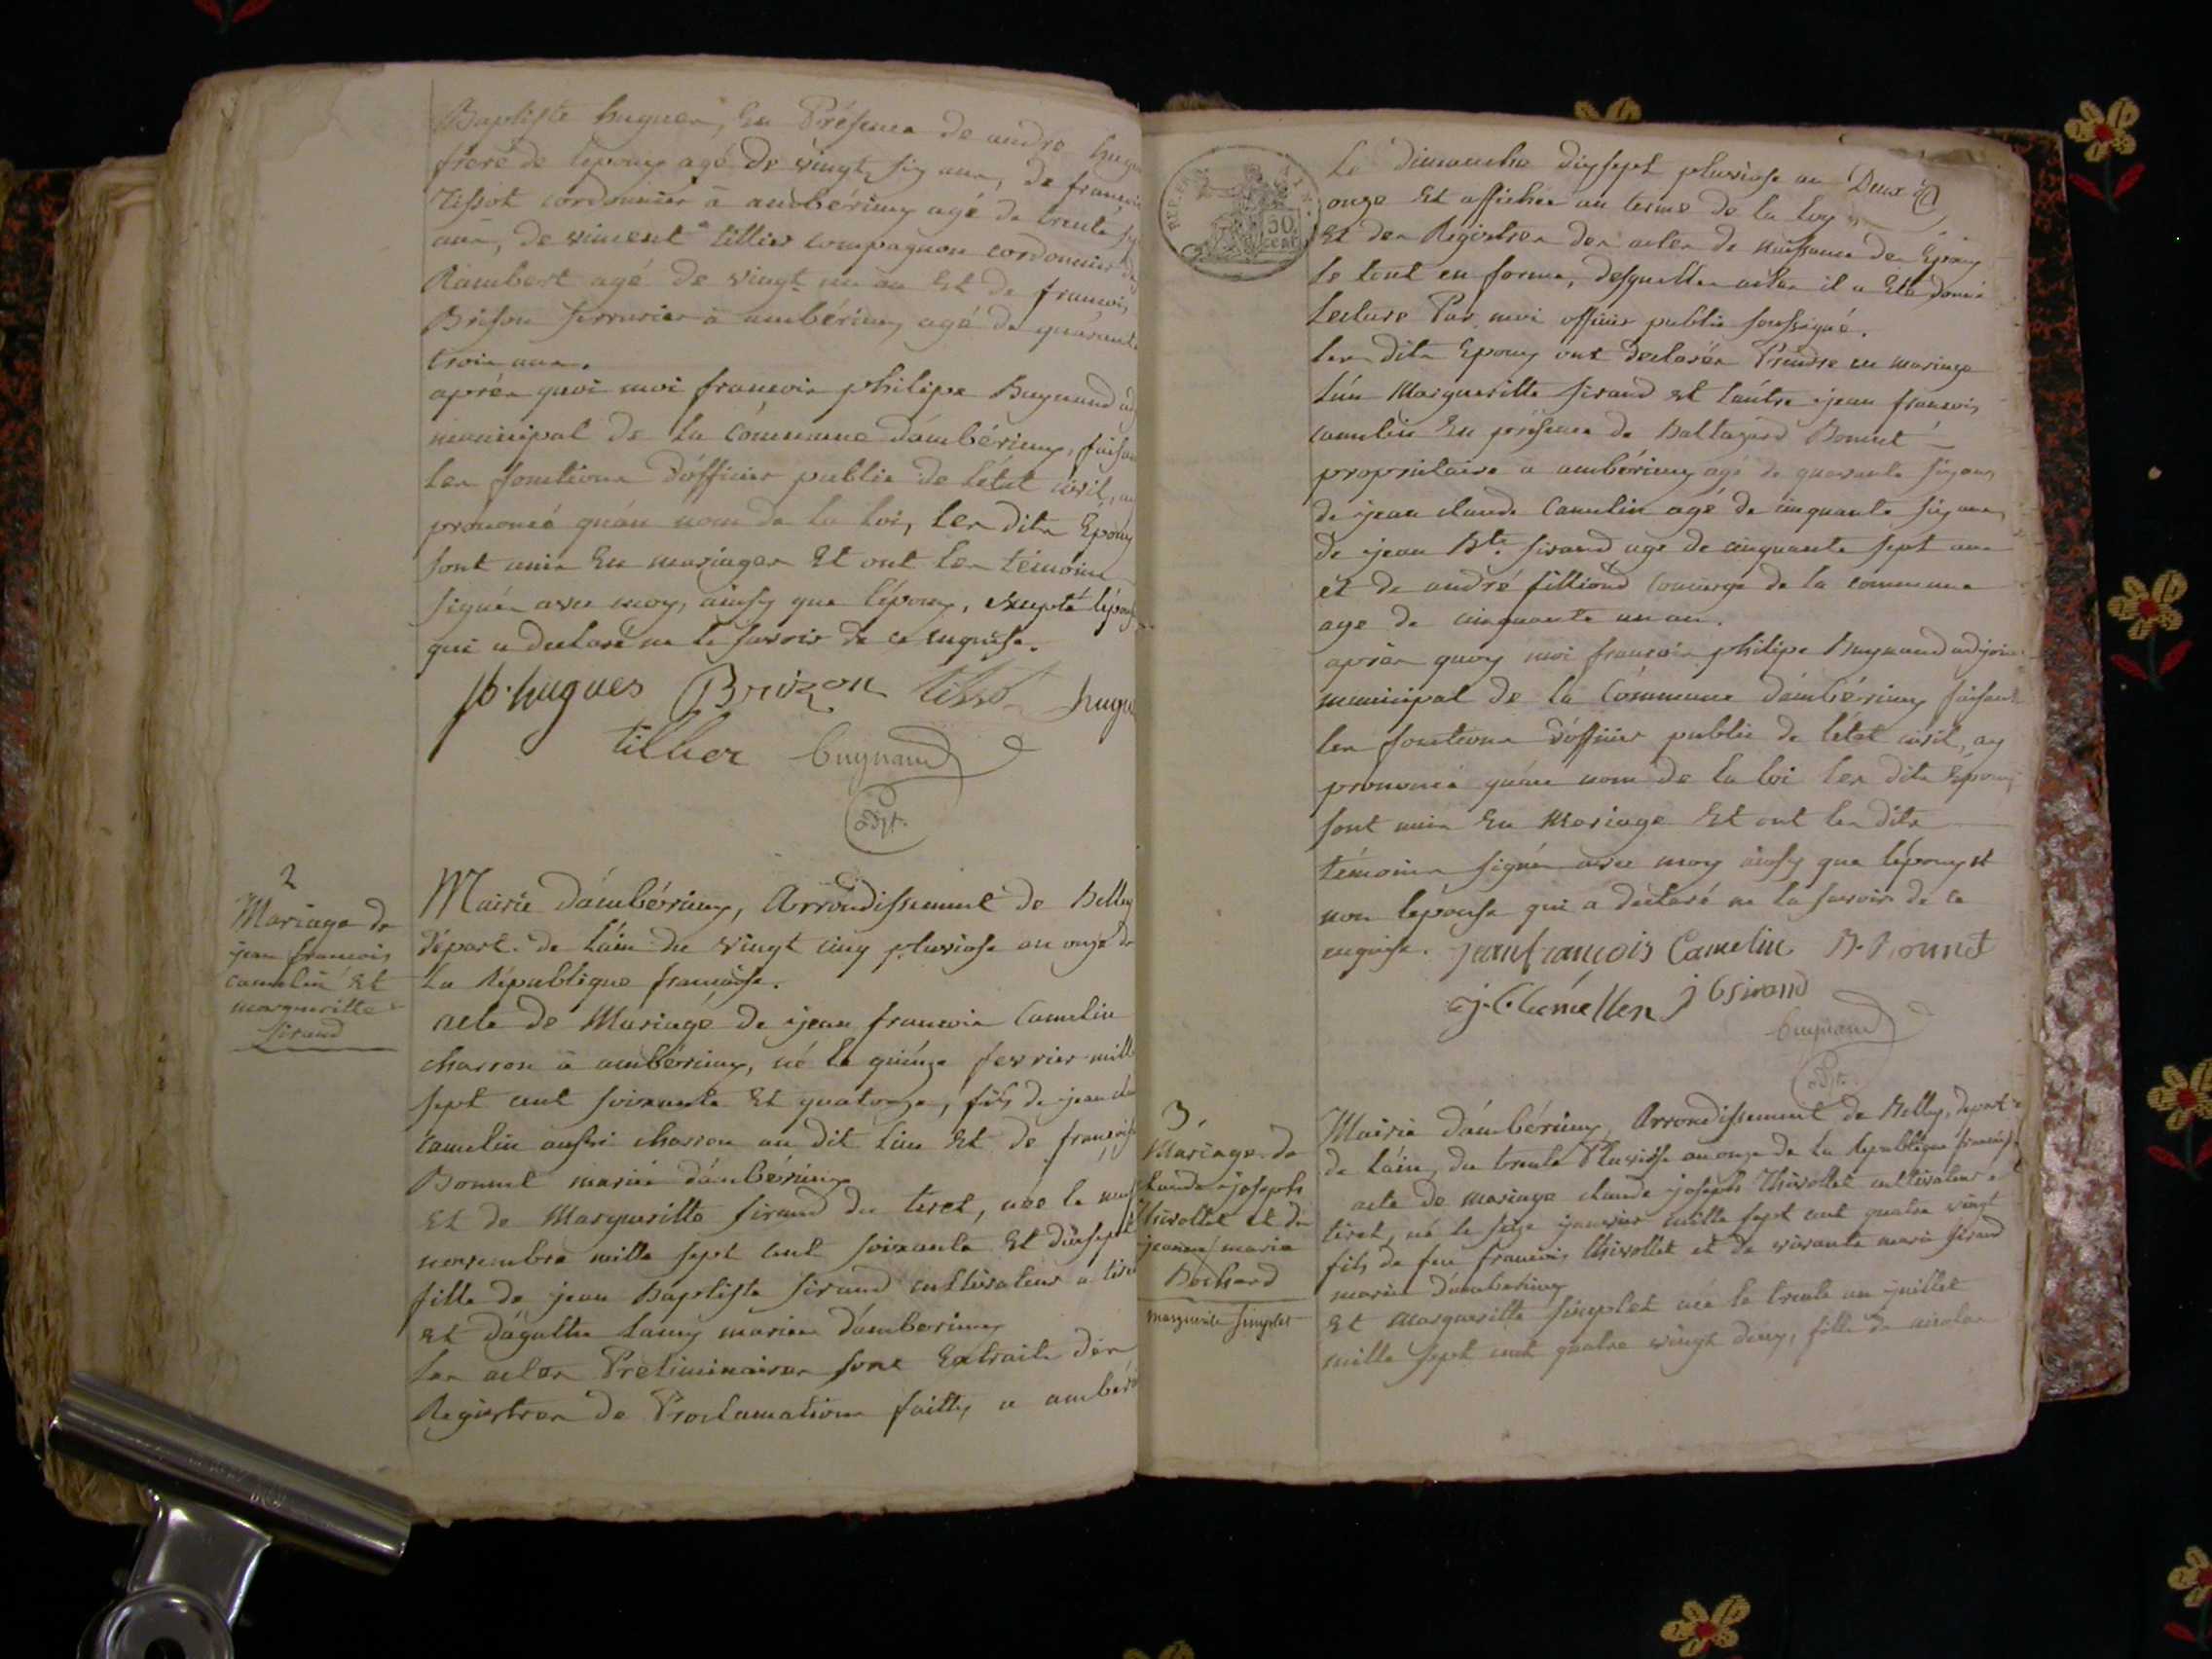 Baptiste hugues, En Présence de andré hugu
frere de lepoux agé de vingt six ans, de francois
Tissot cordonnier à ambérieux agé de trente
ans, de vincent tillier compagnon cordonnier
Rambert agé de vingt un an Et de francois
Brison serrurier à ambérieux agé de quarante
trois ans.
après quoi moi francois philipe Buynand
municipal de la Commune dámbérieux, faisan
les fonctions dófficier public de létat civil, ai
prononcé quáu nom de la loi, les dits Époux
sont unis En mariages Et ont les témoins
signés avec moy, ainsy que lépoux, excepté lépouse
qui a declaré ne le savoir de ce enquise.
jb. hugues Brizon tissot hugu
tillier Buynand
adjt.
2
Mariage de
jean francois
camelin Et
margueritte
Sirand
Mairie dámbérieux, Arrondissement de Belley
départ. de láin du vingt cinq pluviose an onze de
La République francaise.
acte de Mariage de jean francois Camelin
charron à ambérieux, né le quinze fevrier mille
sept cent soixante Et quatorze, fils de jean cl
camelin aussi charron au dit lieu Et de françoise
Bonnet mariés dámbérieux
Et de Margueritte sirand du tiret, née le neuf
novembre mille sept cent soixante Et dixsept
fille de jean Baptiste sirand cultivateur a tiret
Et dágathe Lamy mariés dámberieux
Les actes Preliminaires sont Extraits des
Registres de Proclamations faittes a ambér
50 cent
Le dimanche dixsept pluviose an Deux
onze Et affichées au terme de la loy
Et des Registres des actes de naissance des Époux
Le tout en forme, desquelles actes il a Eté donné
Lecture Par moi officier public soussigné.
les dits Epoux ont declarés Prendre en mariage
Lún Margueritte sirand et láutre jean francois
camelin En présence de Baltazard Bonnet
proprietaire a ambérieux agé de quarante six ans
de jean claude Camelin agé de cinquante six ans
de jean Bte. sirand age de cinquante sept ans
et de andré fillioud Concierge de la commune
age de cinquante un an.
après quoy moi francois philipe Buynand adjoint
municipal de la Commune dámbérieux faisant
les fonctions dófficier public de létat civil, ay
prononcé quáu nom de la loi les dits Époux
sont unis En Mariage Et ont les dits
témoins signés avec moy ainsy que lépoux et
non lépouse qui a déclaré ne la savoir de ce
enquise. jeanfrancois Camelin B. Bonnet
jbsirand
Buynand
adjt.
3
Mariage de
claude joseph
thivollet et de
jeanne marie
Bochard
margueritte simplet
Mairie dámbérieux, Arrondissement de Belley, depart.
de láin, du trente Pluviose an onze de la Republique francaise
acte de mariage claude joseph Thivollet cultivateur a
tiret, né le seize janvier mille sept cent quatre vingt
fils de feu francois thivollet et de vivante marie sirand
mariés dámberieux
Et Margueritte simplet née le trente un juillet
mille sept cent quatre vingt deux, fille de nicolas